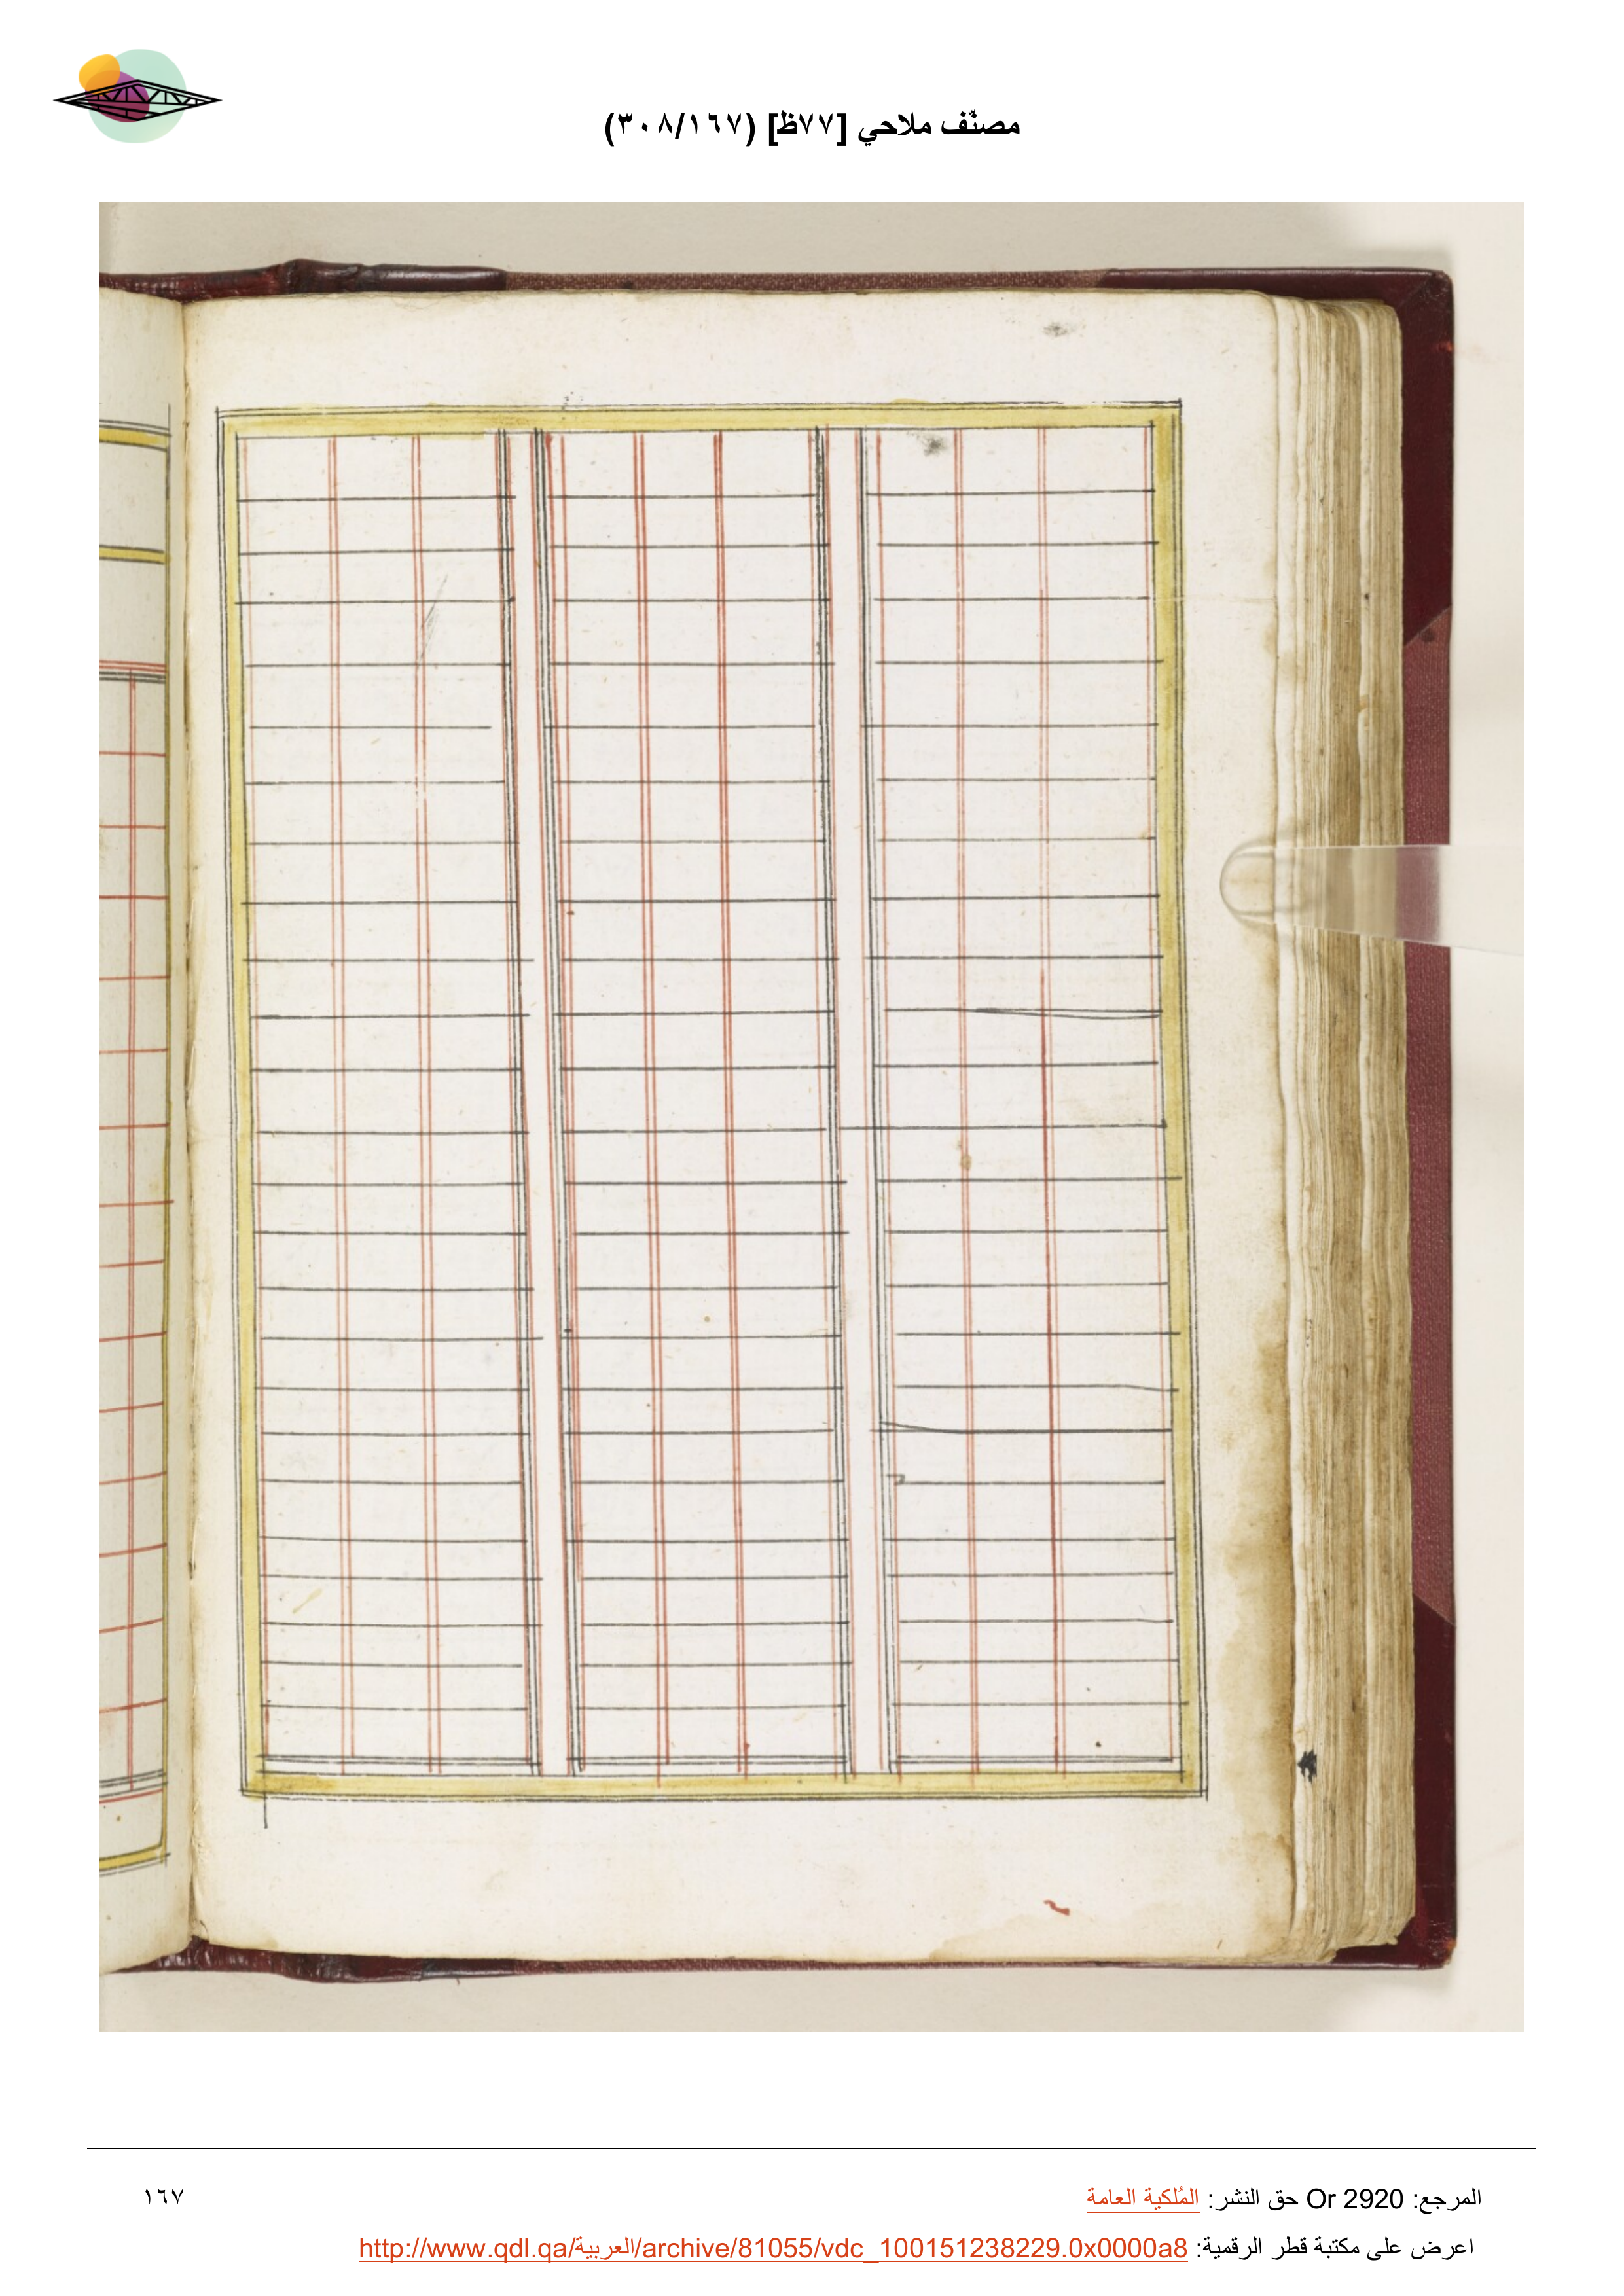 مصنّف ملاحي [٧٧ظ] (٣٠٨/١٦٧)
المرجع: Or 2920 حق النشر: المُلكية العامة
١٦٧
اعرض على مكتبة قطر الرقمية: http://www.qdl.qa/العربية/archive/81055/vdc_100151238229.0x0000a8